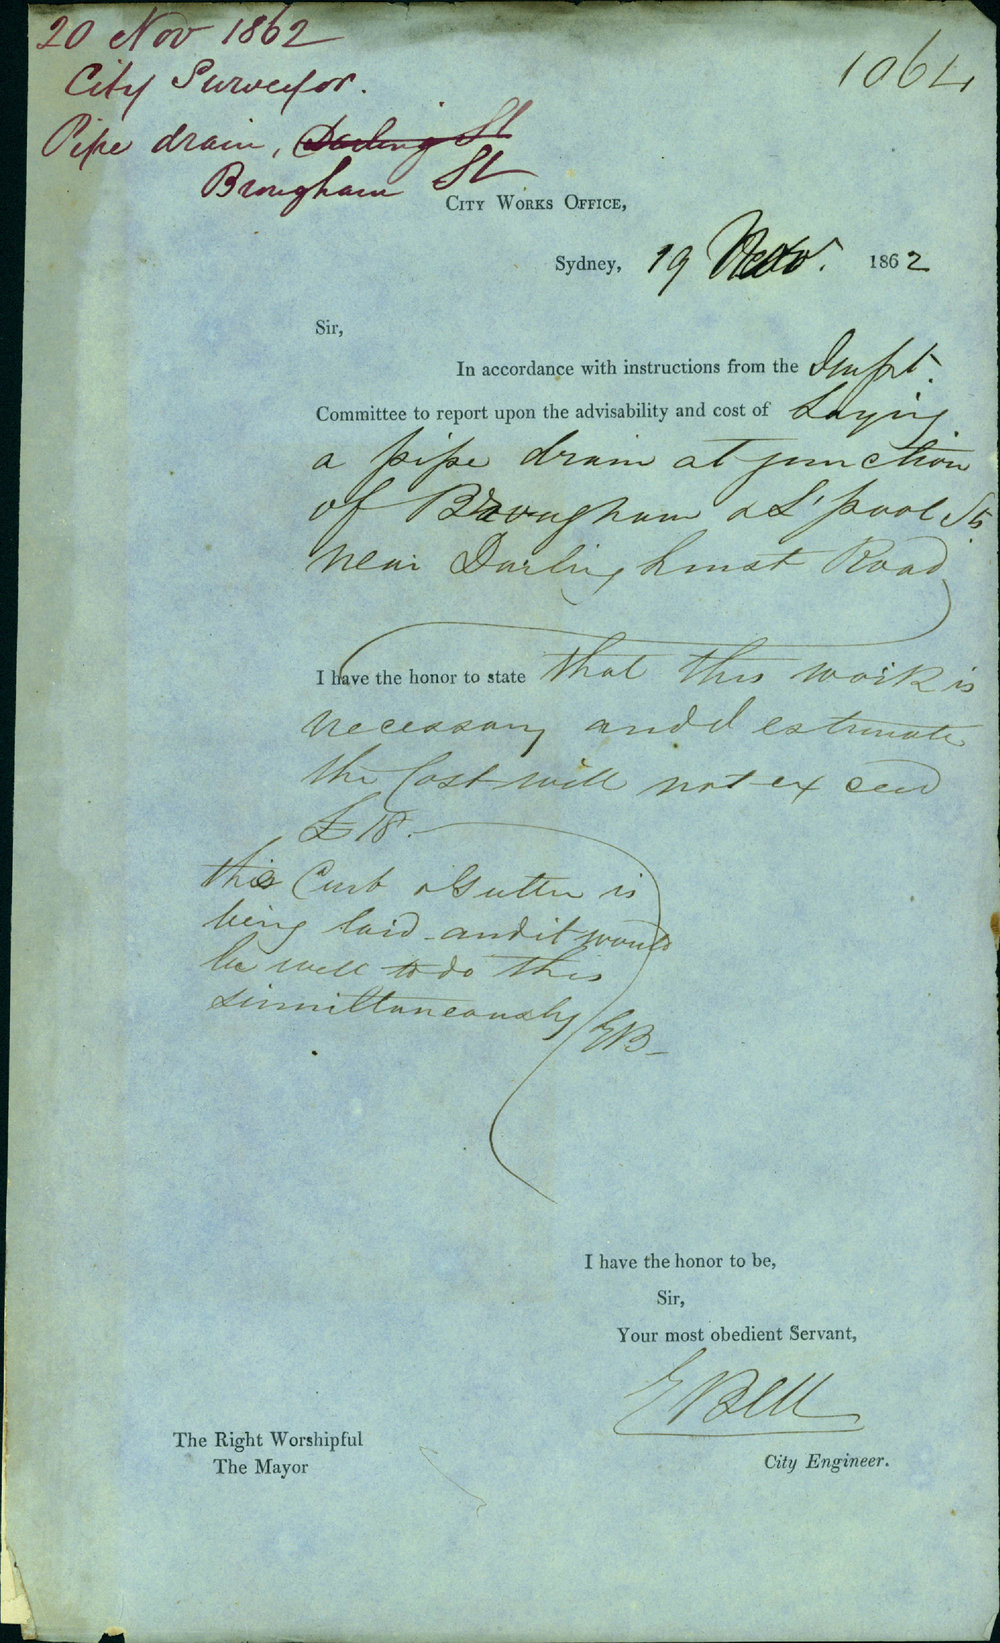 20 Nov 1862
City Surveyor.
Pipe drain, Darling St
Brougham St
1064
CITY WORKS OFFICE,
Sydney, 19 Nov. 1862
Sir,
In accordance with instructions from the Impt.
Committee to report upon the advisability and cost of Laying
a pipe drain at junction
of Brougham & L'pool Sts
near Darlinghurst Road
I have the honor to state that this work is
necessary and I estimate
the Cost will not exceed
£18.
the Curb & Gutter is
being laid and it would
be well to do this
simultaneously EB
I have the honor to be,
Sir,
Your most obedient Servant,
E Bell
City Engineer.
The Right Worshipful
The Mayor